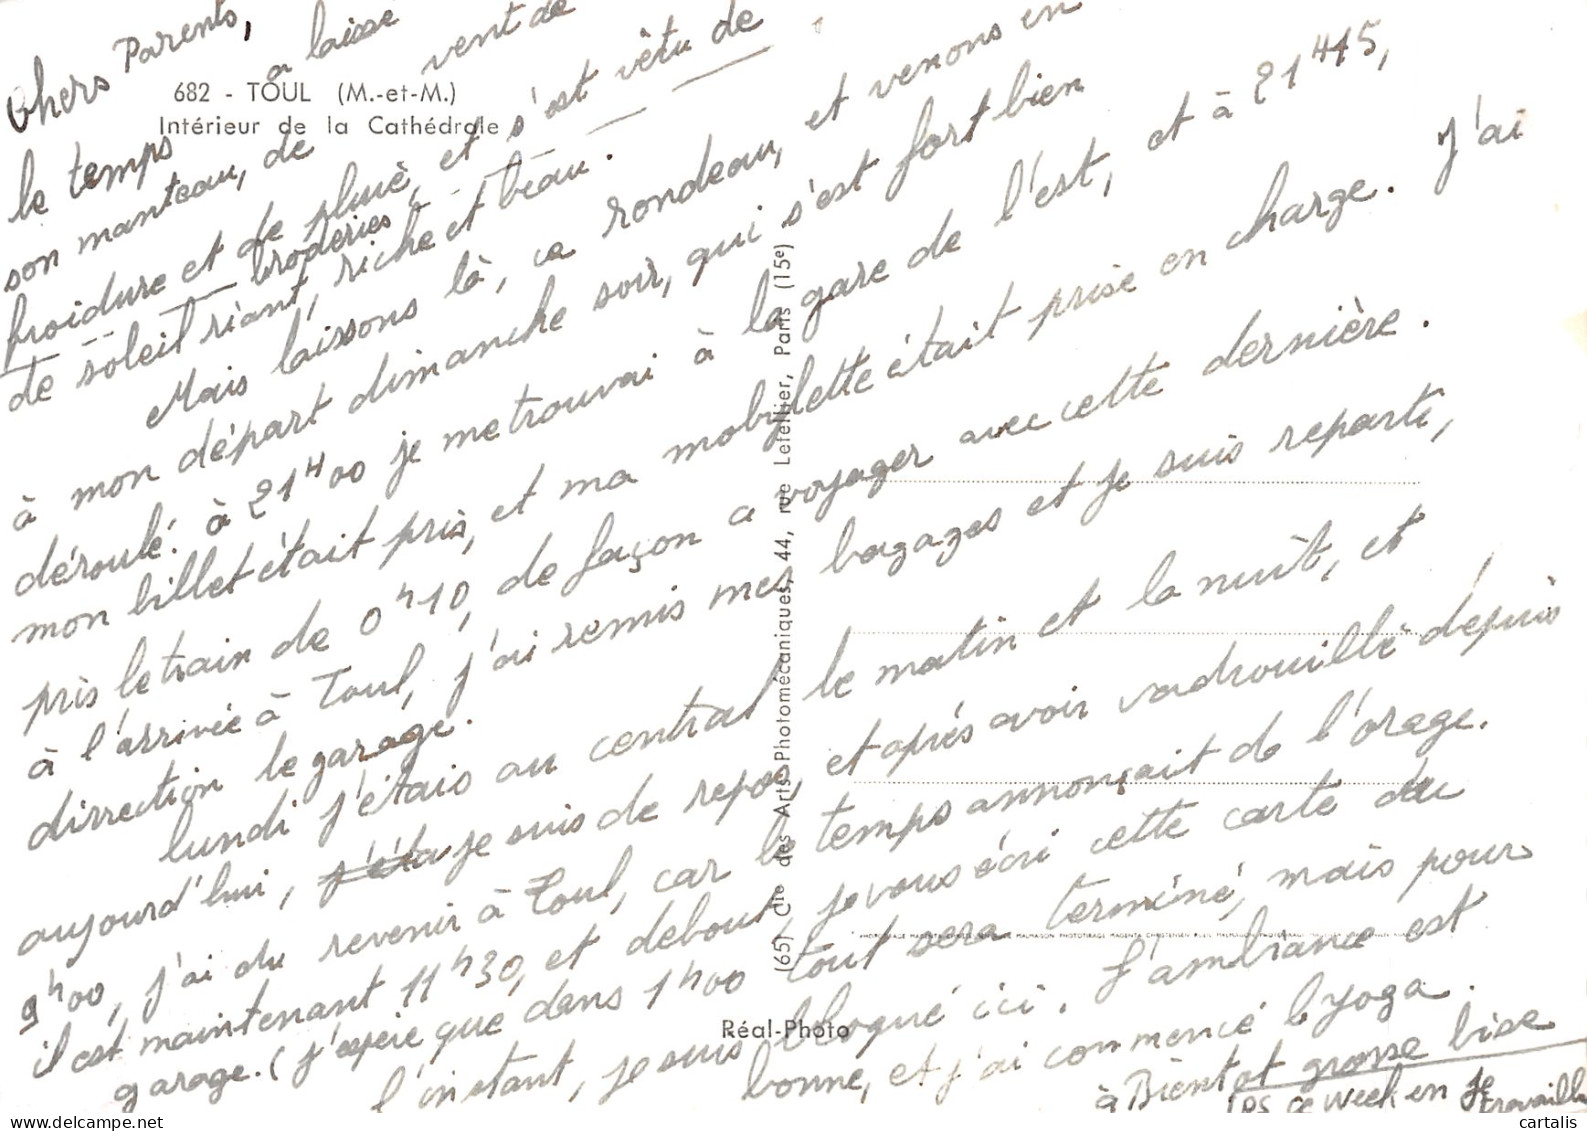 682 - TOUL (M.-et-M.)
Intérieur de la Cathédrale
Chers Parents,
le temps a laissé
son manteau, de vent de
froidure et de pluiè, et s'est vêtu de
broderies
de soleil riant, riche et beau.
Mais laissons là, ca rondeau, et venons en
à mon départ dimanche soir, qui s'est fort bien
déroulé. à 21H00 je me trouvai à la gare de l'est, et à 21H15,
mon billet était pris, et ma mobylette était prise en charge. J'ai
pris le train de 0H10, de façon a voyager avec cette dernière.
à l'arrivée à Toul, j'ai remis mes bagages et je suis reparti,
dirrection le garage.
lundi j'étais au central le matin et la nuit, et
aujourd'hui, je suis de repos, et aprés avoir vadrouillé depuis
9H00, j'ai du revenir à Toul, car le temps annonçait de l'orage.
il est maintenant 11H30, et debout, je vous écri cette carte du
garage. (j'espeie que dans 1H00 tout sera terminé, mais pour
l'instant, je suis bloqué ici. L'ambiance est
bonne, et j'ai commencé le yoga.
à Bientot grosse bise
PS ce week en je
travaille
(65) Cie des Arts Photomécaniques, 44, rue Letellier, Paris (15e)
Réal-Photo
cartalis